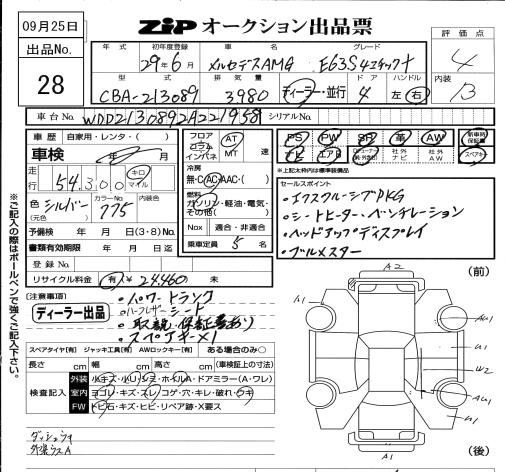 09月25日
ZiP オークション出品票
出品No.
28
年式 初年度登録 車名 グレード
29年6月 メルセデスAMG E63S 4マチック+
評価点
4
型式 排気量 ドア ハンドル
CBA-213089 3980 ディーラー・並行 4 左 右
内装
B
車台No. WDD2130892A221958 シリアルNo.
車歴 自家用・レンタ( )
車検 年 月
走行 54,300 キロ マイル
色 シルバー カラーNo. 775 内装色
(元色)
予備検 年 月 (3・8) No.
書類有効期限 年 月 日迄
登録No.
リサイクル料金 有 ¥24,460 未
フロア コラム インパネ AT MT 速
冷房 無・C・AC・AAC・( )
燃料 ガソリン・軽油・電気・その他( )
Nox 適合・非適合
乗車定員 5 名
PS PW SR 革 AW 新車時保証書
ナビ エアB 社外ナビ 社外AW スペアキー
*上記太枠内は標準装備品
セールスポイント
・エクスクルーシブPKG
・シートヒーター・ベンチレーション
・ヘッドアップディスプレイ
・ブルメスター
(注意事項)
ディーラー出品
・パワートランク
・ハーフレザーシート
・取説・保証書あり
・スペアキー×1
スペアタイヤ[有] ジャッキ工具[有] AWロックキー[有] ある場合のみ○
長さ cm 幅 cm 高さ cm (車検証上の寸法)
検査記入
外装 小キズ・小リ・ダミ・ホイルA・ドアミラー(A・ワレ)
室内 ヨゴレ・キズ・スレ・コゲ・穴・キレ・破れ・ウキ
FW トビ石・キズ・ヒビ・リペア跡・X要ス
ダッシュウキ
外装ウスA
※ご記入の際はボールペンで強くご記入下さい。
(前)
A2
A1
AU1
U1
W2
AU1
A1
U1
A1
(後)